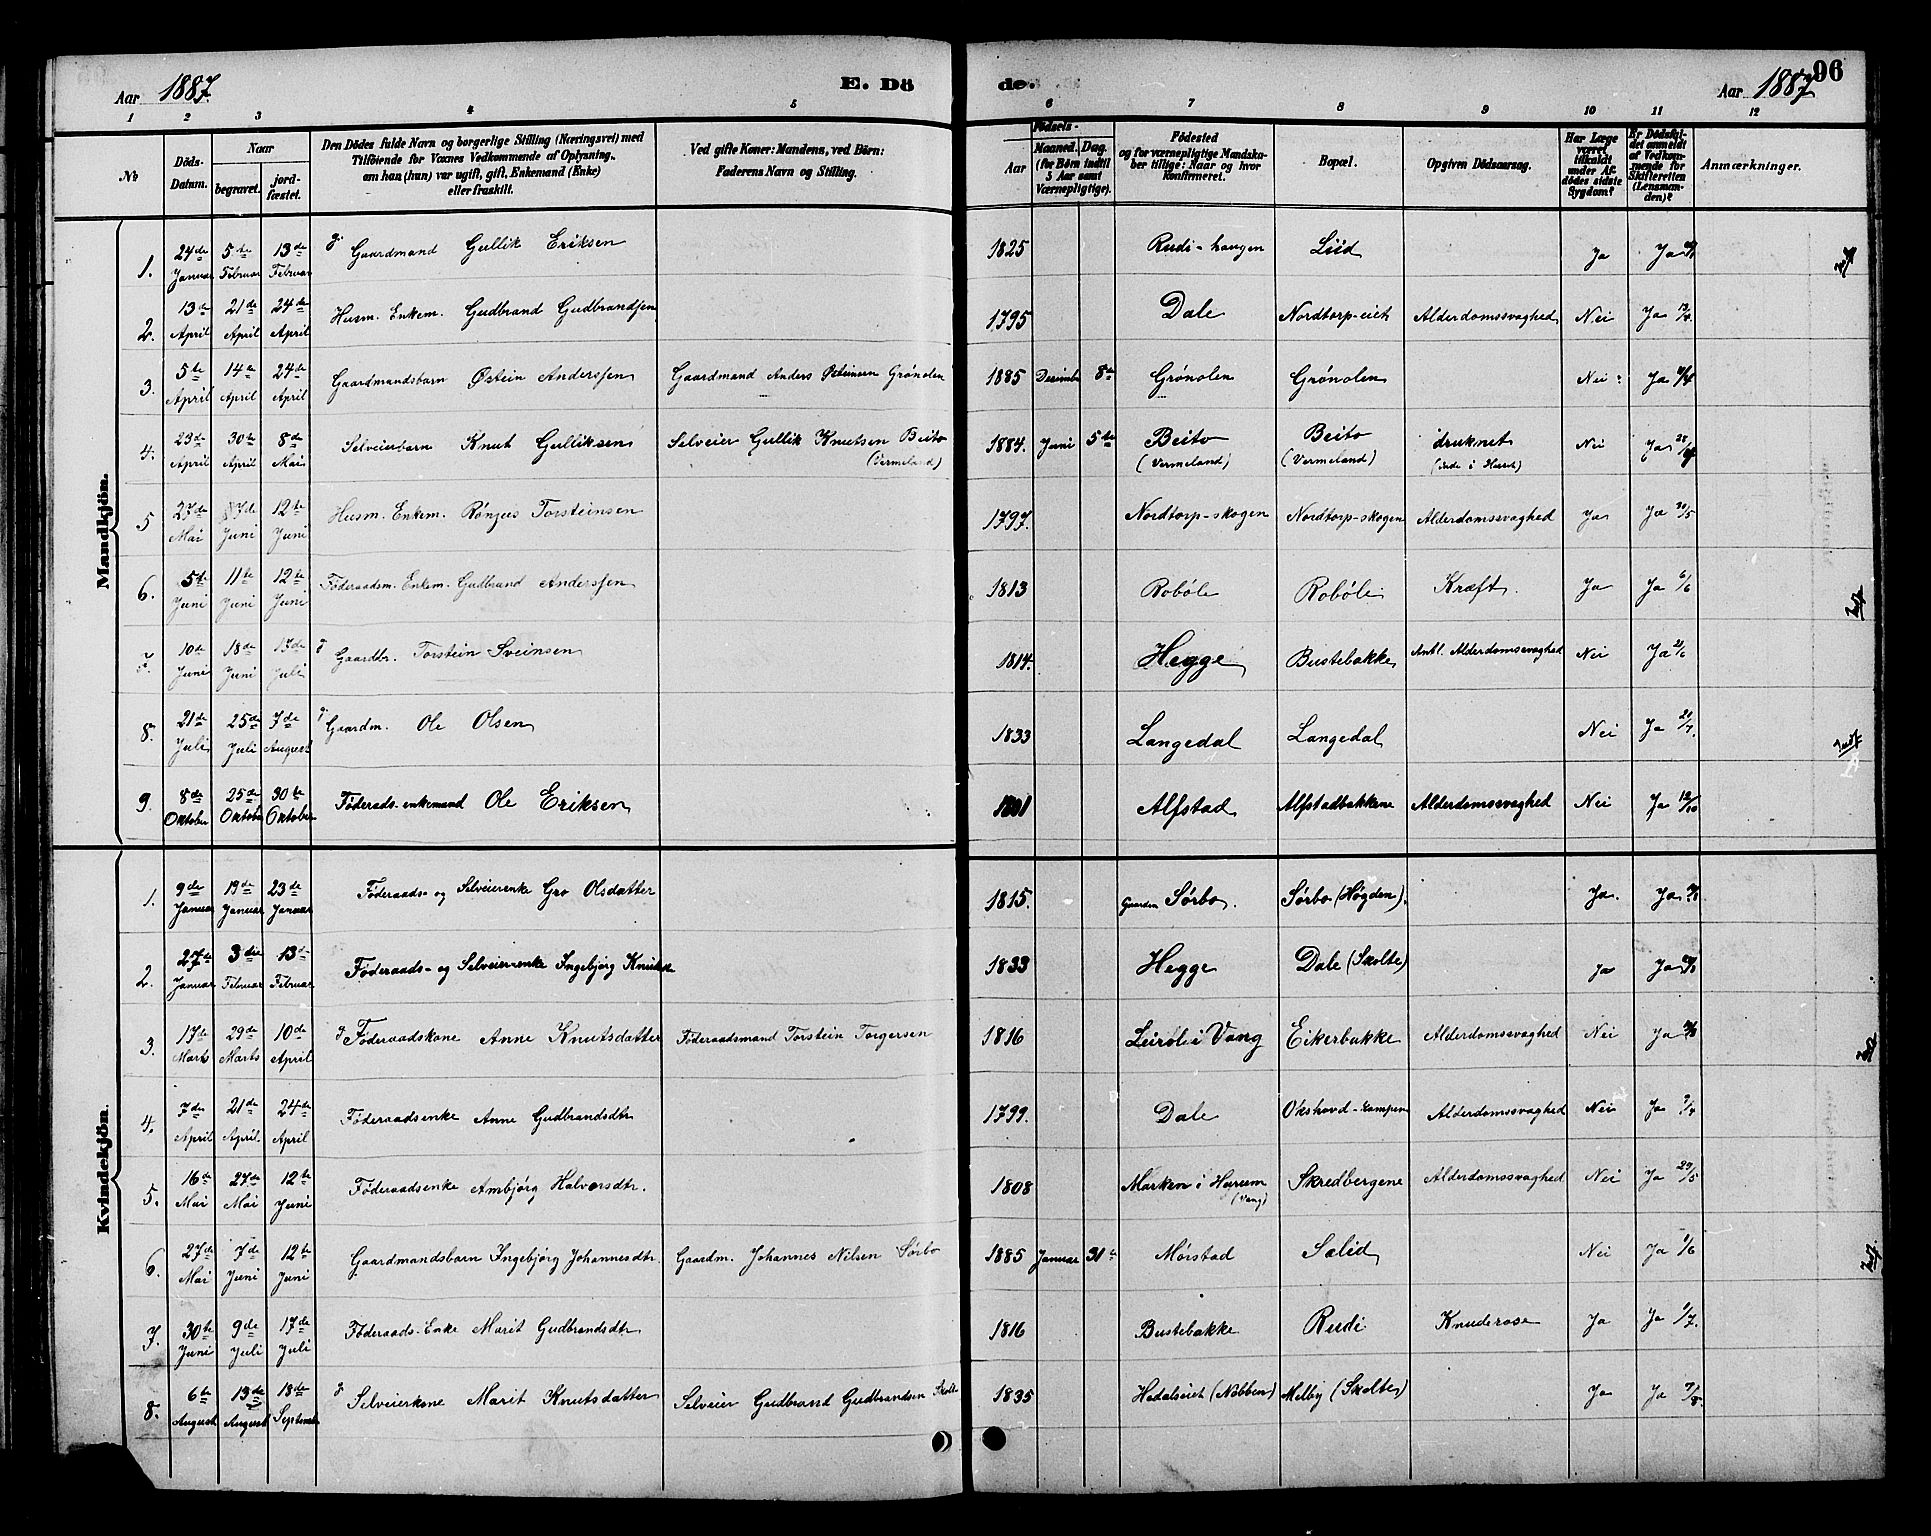 Aar 1887. E. Dö de. Aar 1887 96
1 2 3 4 5 6 7 8 9 10 11 12
No
Döds-Datum.
Naar
begravet.
jordfæstet.
Den Dödes fulde Navn og borgerlige Stilling (Næringsvei) med
Tilföiende for Voxnes Vedkommende af Oplysning,
om han (hun) var ugift, gift, Enkemand (Enke)
eller fraskilt.
Ved gifte Koner: Mandens, ved Börn:
Faderens Navn og Stilling.
Födsels-
Aar
Maaned. Dag.
(for Börn indtil
5 Aar samt
Værnepligtige).
Födested
og for værnepligtige Mandskaber tillige: Naar og hvor
konfirmeret.
Bopæl.
Opgiven Dödsaarsag.
Har Læge
været
tilkaldt
under Afdödes sidste
Sygdom?
Er Dödsfaldet anmeldt
af Vedkommende for
Skifteretten
(Lensmanden)?
Anmærkninger.
Mandkjön.
1. 24de Januar 5te Februar 13de Februar g Gaardmand Gullik Eriksen 1825 Rudi-haugen Liid Ja Ja
2. 13de April 21de April 24de April Husm. Enkem. Gudbrand Gudbrandsen 1795 Dale Nordtorp-eieh Alderdomssvaghed Nei Ja 13/4.
3. 5te April 14de April 24de April Gaardmandsbarn Østein Anderssen Gaardmand Anders Østeinsen Grónolen 1885 Decembr 8de Grónolen Grónolen Nei Ja
4. 23de April 30te April 8de Mai Selveierbarn Knut Gulliksen Selveier Gullik Knutsen Beito (Vermeland) 1884. Juni 5te Beito (Vermeland) Beito (Vermeland) druknet Nei Ja 28/4
5 27de Mai 7de Juni 12te Juni Husm. Enkem. Torsteinsen 1797. Nordtorp-skogen Nordtorp-skogen Alderdomssvaghed Ja Ja
6. 5te Juni 11te Juni 12te Juni Føderaadsm. Enkem. Gudbrand Anderssen 1813 Robóle Robóle Kræft. Ja Ja 6/6
7. 10de Juni 18de Juni 17de Juli g Gaardbr. Torstein Sveinsen 1814. Hegge Bustebakke Antl. Alderdomssvaghed Nei Ja 21/6
8. 21de Juli 25de Juli 7de August g Gaardm. Ole Olsen 1833 Langedal Langedal Nei Ja 21/7.
9. 8de Oktober 25de Oktober 30te Oktober Føderaads-enkemand Ole Eriksen 1801 Alfstad Alfstadbakkene Alderdomssvaghed Nei Ja 12/10
Kvindekjön.
1. 9de Januar 19de Januar 23de Januar Føderaads- og Selveierenke Gro Olsdatter 1815. Gaarden Sørbo. Sørbo (Høgden). Ja. Ja
2. 27de Januar 3die Februar 13de Februar Føderaads- og Selveierenke Ingebjørg 1833 Hegge Dale (Skolte) Ja Ja
3. 17de Marts 29de Marts 10de April g Føderaadskone Anne Knutsdatter Føderaadsmand Torstein Torgersen 1816 Leiróli i Vang Eikerbakke Alderdomssvaghed Nei Ja
4. 7de April 21de April 24de April Føderaadsenke Anne Gudbrandsdtr 1799. Dale Okshovd-kampen Alderdomssvaghed Nei Ja 9/4
5. 16de Mai 27de Mai 12te Juni Føderaadsenke Ambjørg Halvorsdtr. 1808 Marken i Hurum (Vang) Skredbergene Alderdomssvaghed Nei Ja 29/5
6. 27de Mai 7de Juni 12te Juni Gaardmandsbarn Ingebjørg Johannesdtr. Gaardm. Johannes Nilsen Sørbo 1885 Januar 31te Mørstad Salid Nei Ja 1/6
7. 30te Juni 9de Juli 17de Juli Føderaads-Enke Marit Gudbrandsdtr 1816 Bustebakke Rudi Knuderose Ja Ja 1/7.
8. 6te August 13de August 18de Septembr g Selveierkone Marit Knutsdatter Selveier Gudbrand Gudbrandsen Skolte 1835 Hedalseiet (Nobben) Melby (Skolte) Ja Ja 7/8.